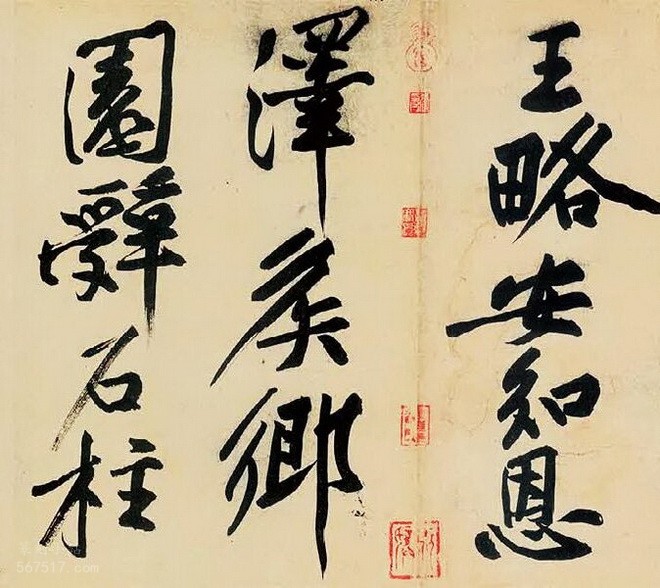 王略安知恩
澤侯鄉
園辤石柱
567517.com